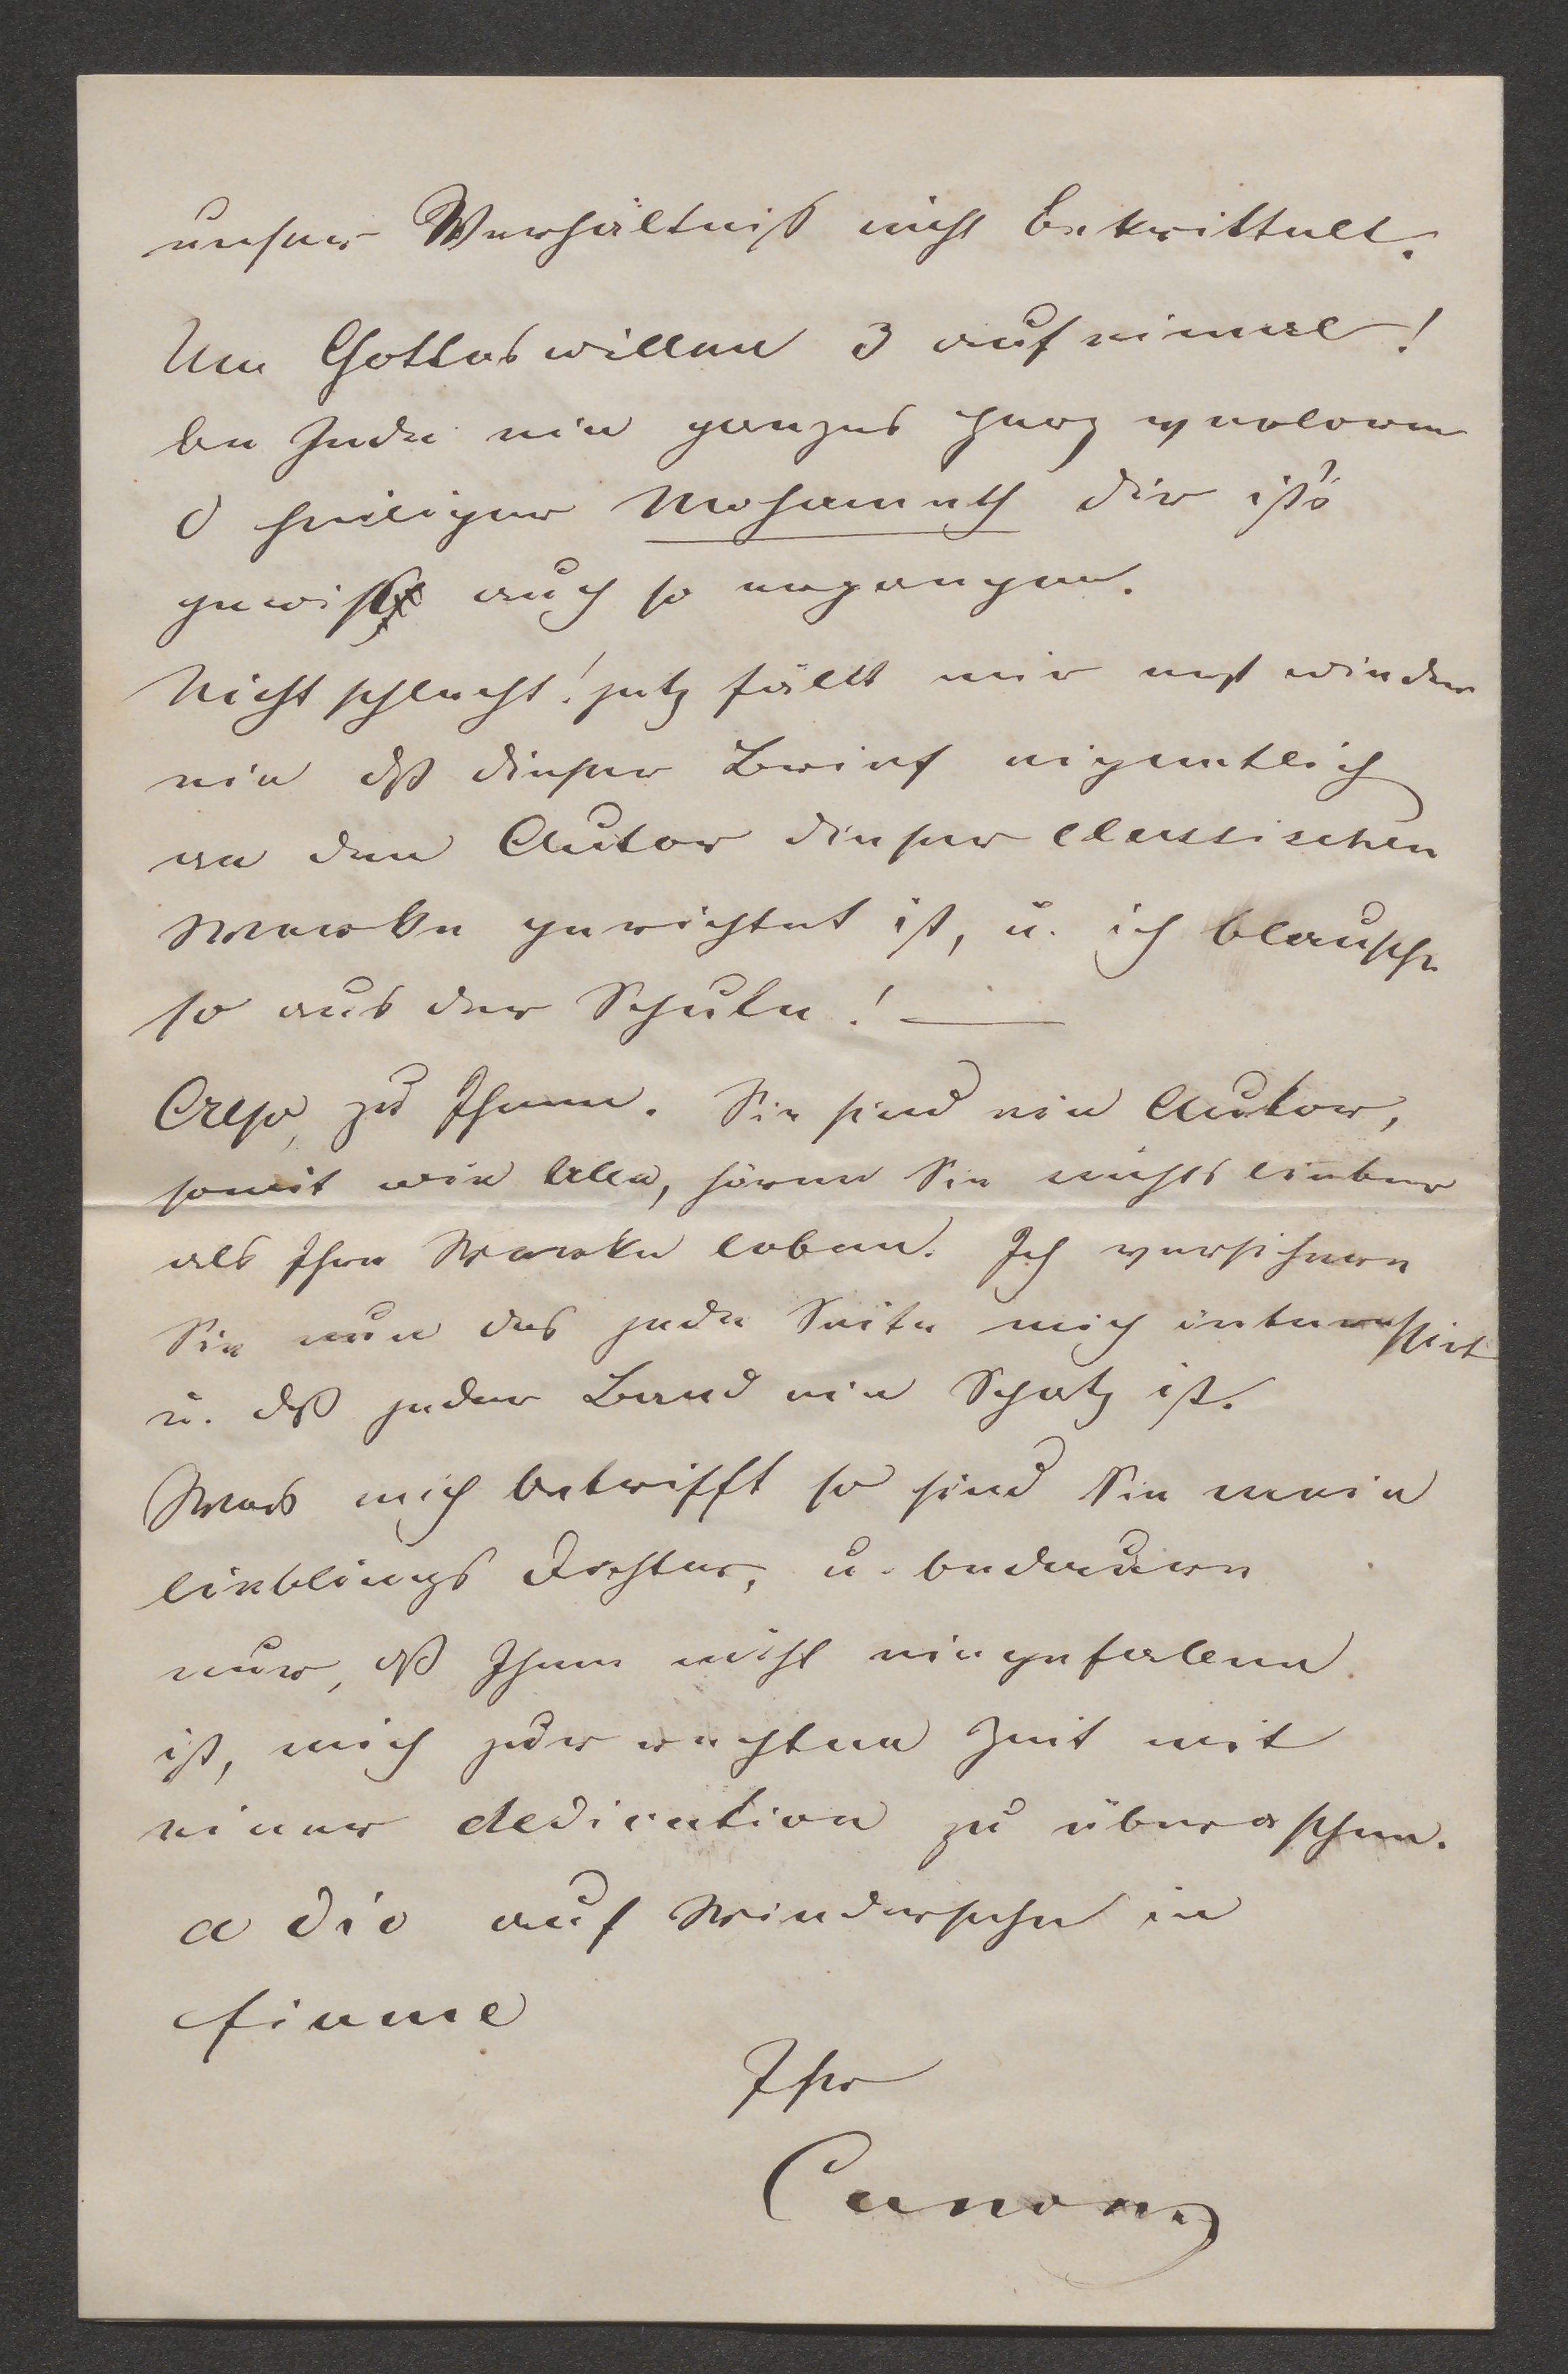 unser Verhältniß nicht bekrittelt.
Um Gotteswillen 3 auf einmal!
an Jede ein ganzes Herz verloren
O heiliger Mohameth dir ist's
gewiß auch so ergangen.
Nicht schlecht! jetz fällt mir erst wieder
ein dß dieser Brief eigentlich
an den Autor dieser classischen
Werke gerichtet ist, u. ich blausche
so aus der Schule! —
Also, zu Ihnen. Sie sind ein Autor,
somit wie Alle, hören Sie nichts lieber
als Ihre Werke loben. Ich versichere
Sie nun das jede Seite mich interessirt
u. dß jeder Band ein Schatz ist.
Was mich betrifft so sind Sie mein
lieblings Dichter, u. bedauere
nur, dß Ihnen nicht eingefallen
ist, mich zur rechten Zeit mit
einer dedication zu überaschen.
a dio auf Wiedersehn in
fiume
Ihr
Canon